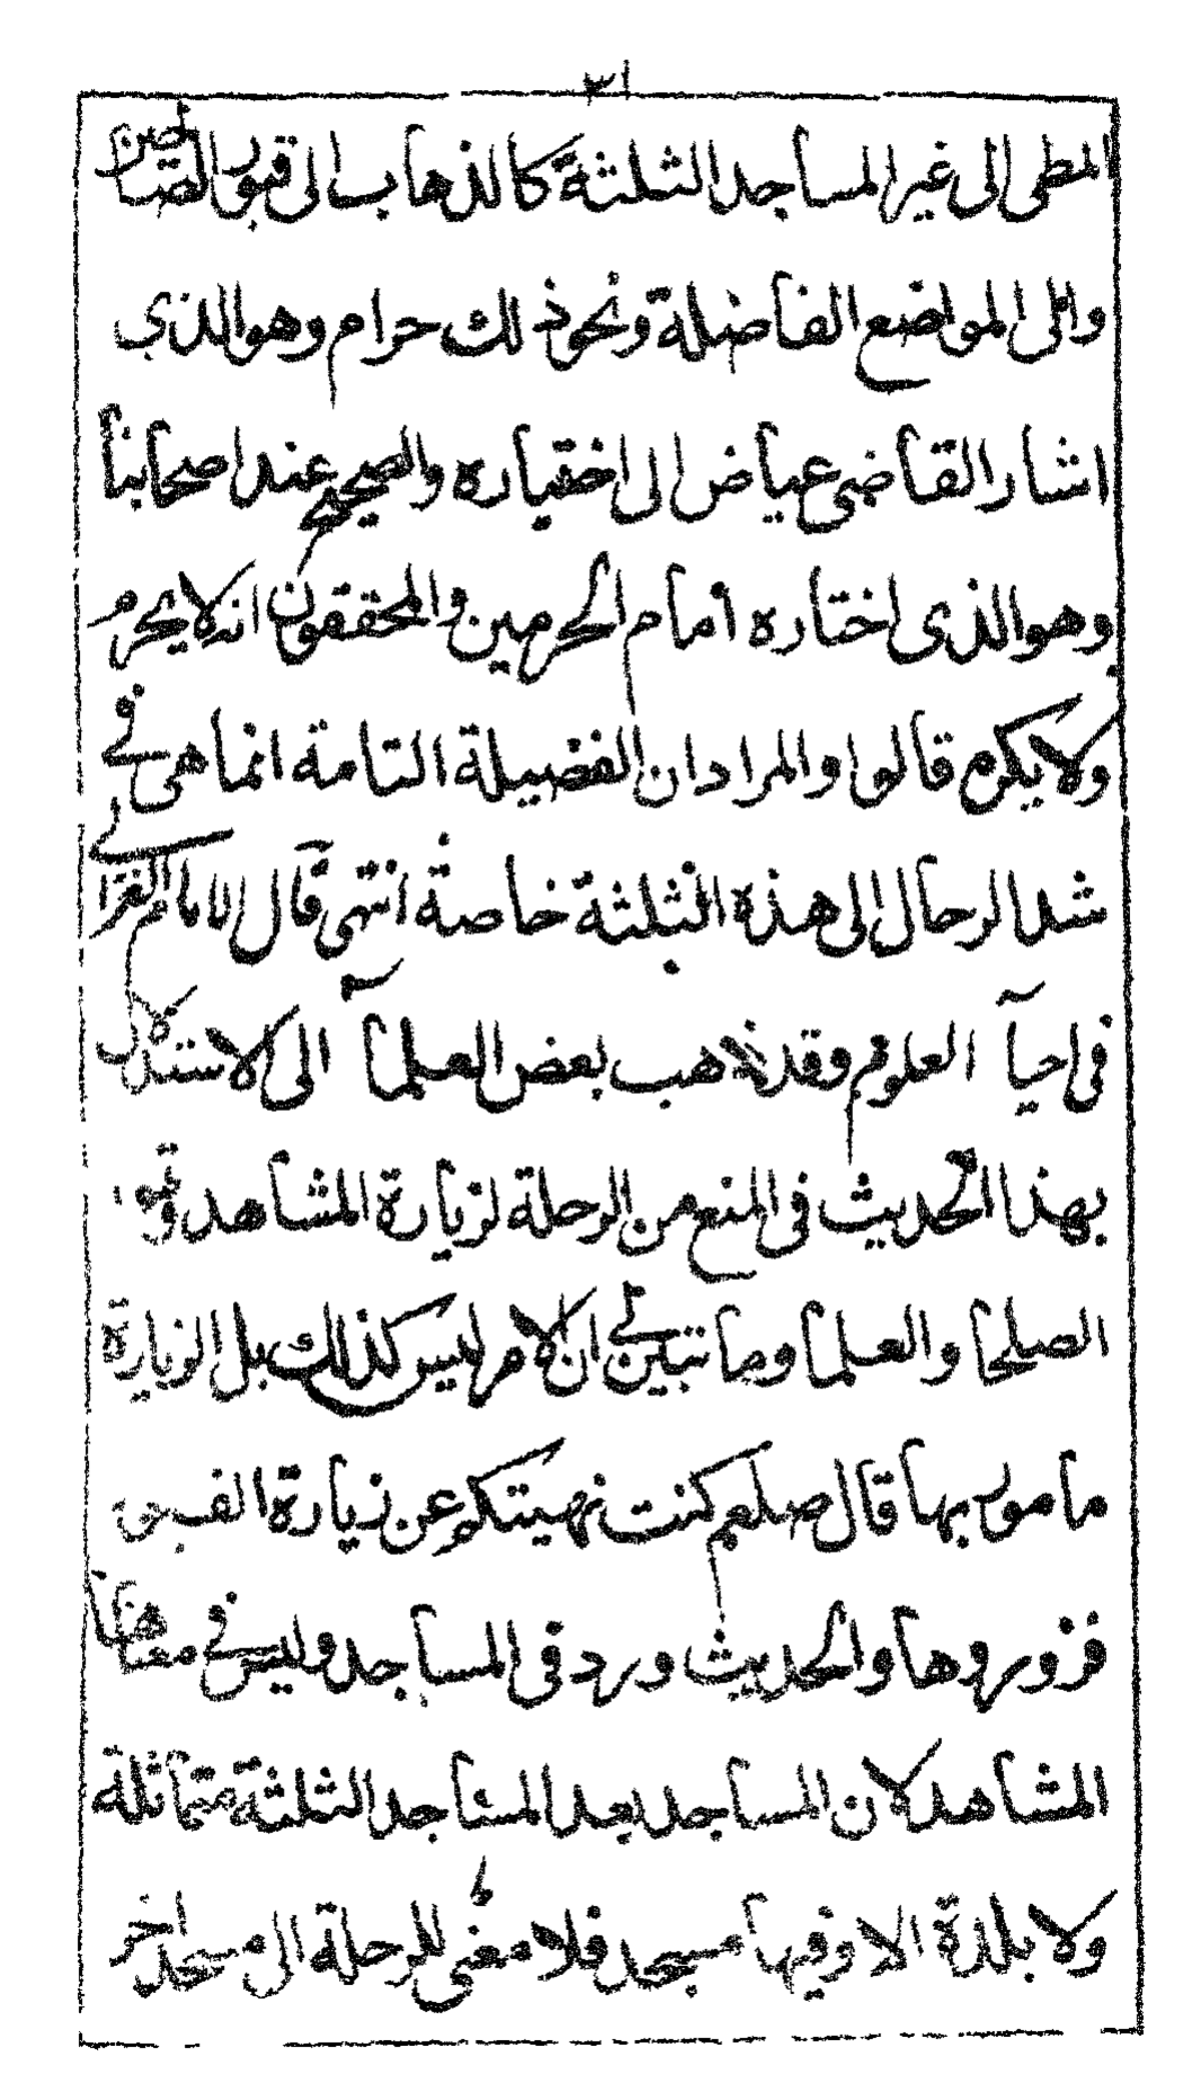 ٣١
المطى الى غير المساجد الثلثة كالذهاب الى قبور الصالحين
والى المواضع الفاضلة ونحو ذلك حرام وهو الذي
اشار القاضى عياض الى اختياره والصحيح عند اصحابنا
وهو الذى اختاره امام الحرمين والمحققون انه لا يحرم
ولا يكره قالوا والمراد ان الفضيلة التامة انما هى في
شد الرحال الى هذه الثلثة خاصة انتهى قال الامام الغزالي
فى احيآ العلوم وقد ذهب بعض العلمآ الى الاستدلال
بهذا الحديث فى المنع من الرحلة لزيارة المشاهد وقبور
الصلحا والعلما وما تبين لي ان الامر ليس كذلك بل الزيارة
مامور بها قال صلعم كنت نهيتكم عن زيارة القبور
فزوروها والحديث ورد فى المساجد وليس في معناها
المشاهد لان المساجد بعد المساجد الثلثة متماثلة
ولا بلدة الا وفيها مسجد فلا معنى للرحلة الى مسجد اخر